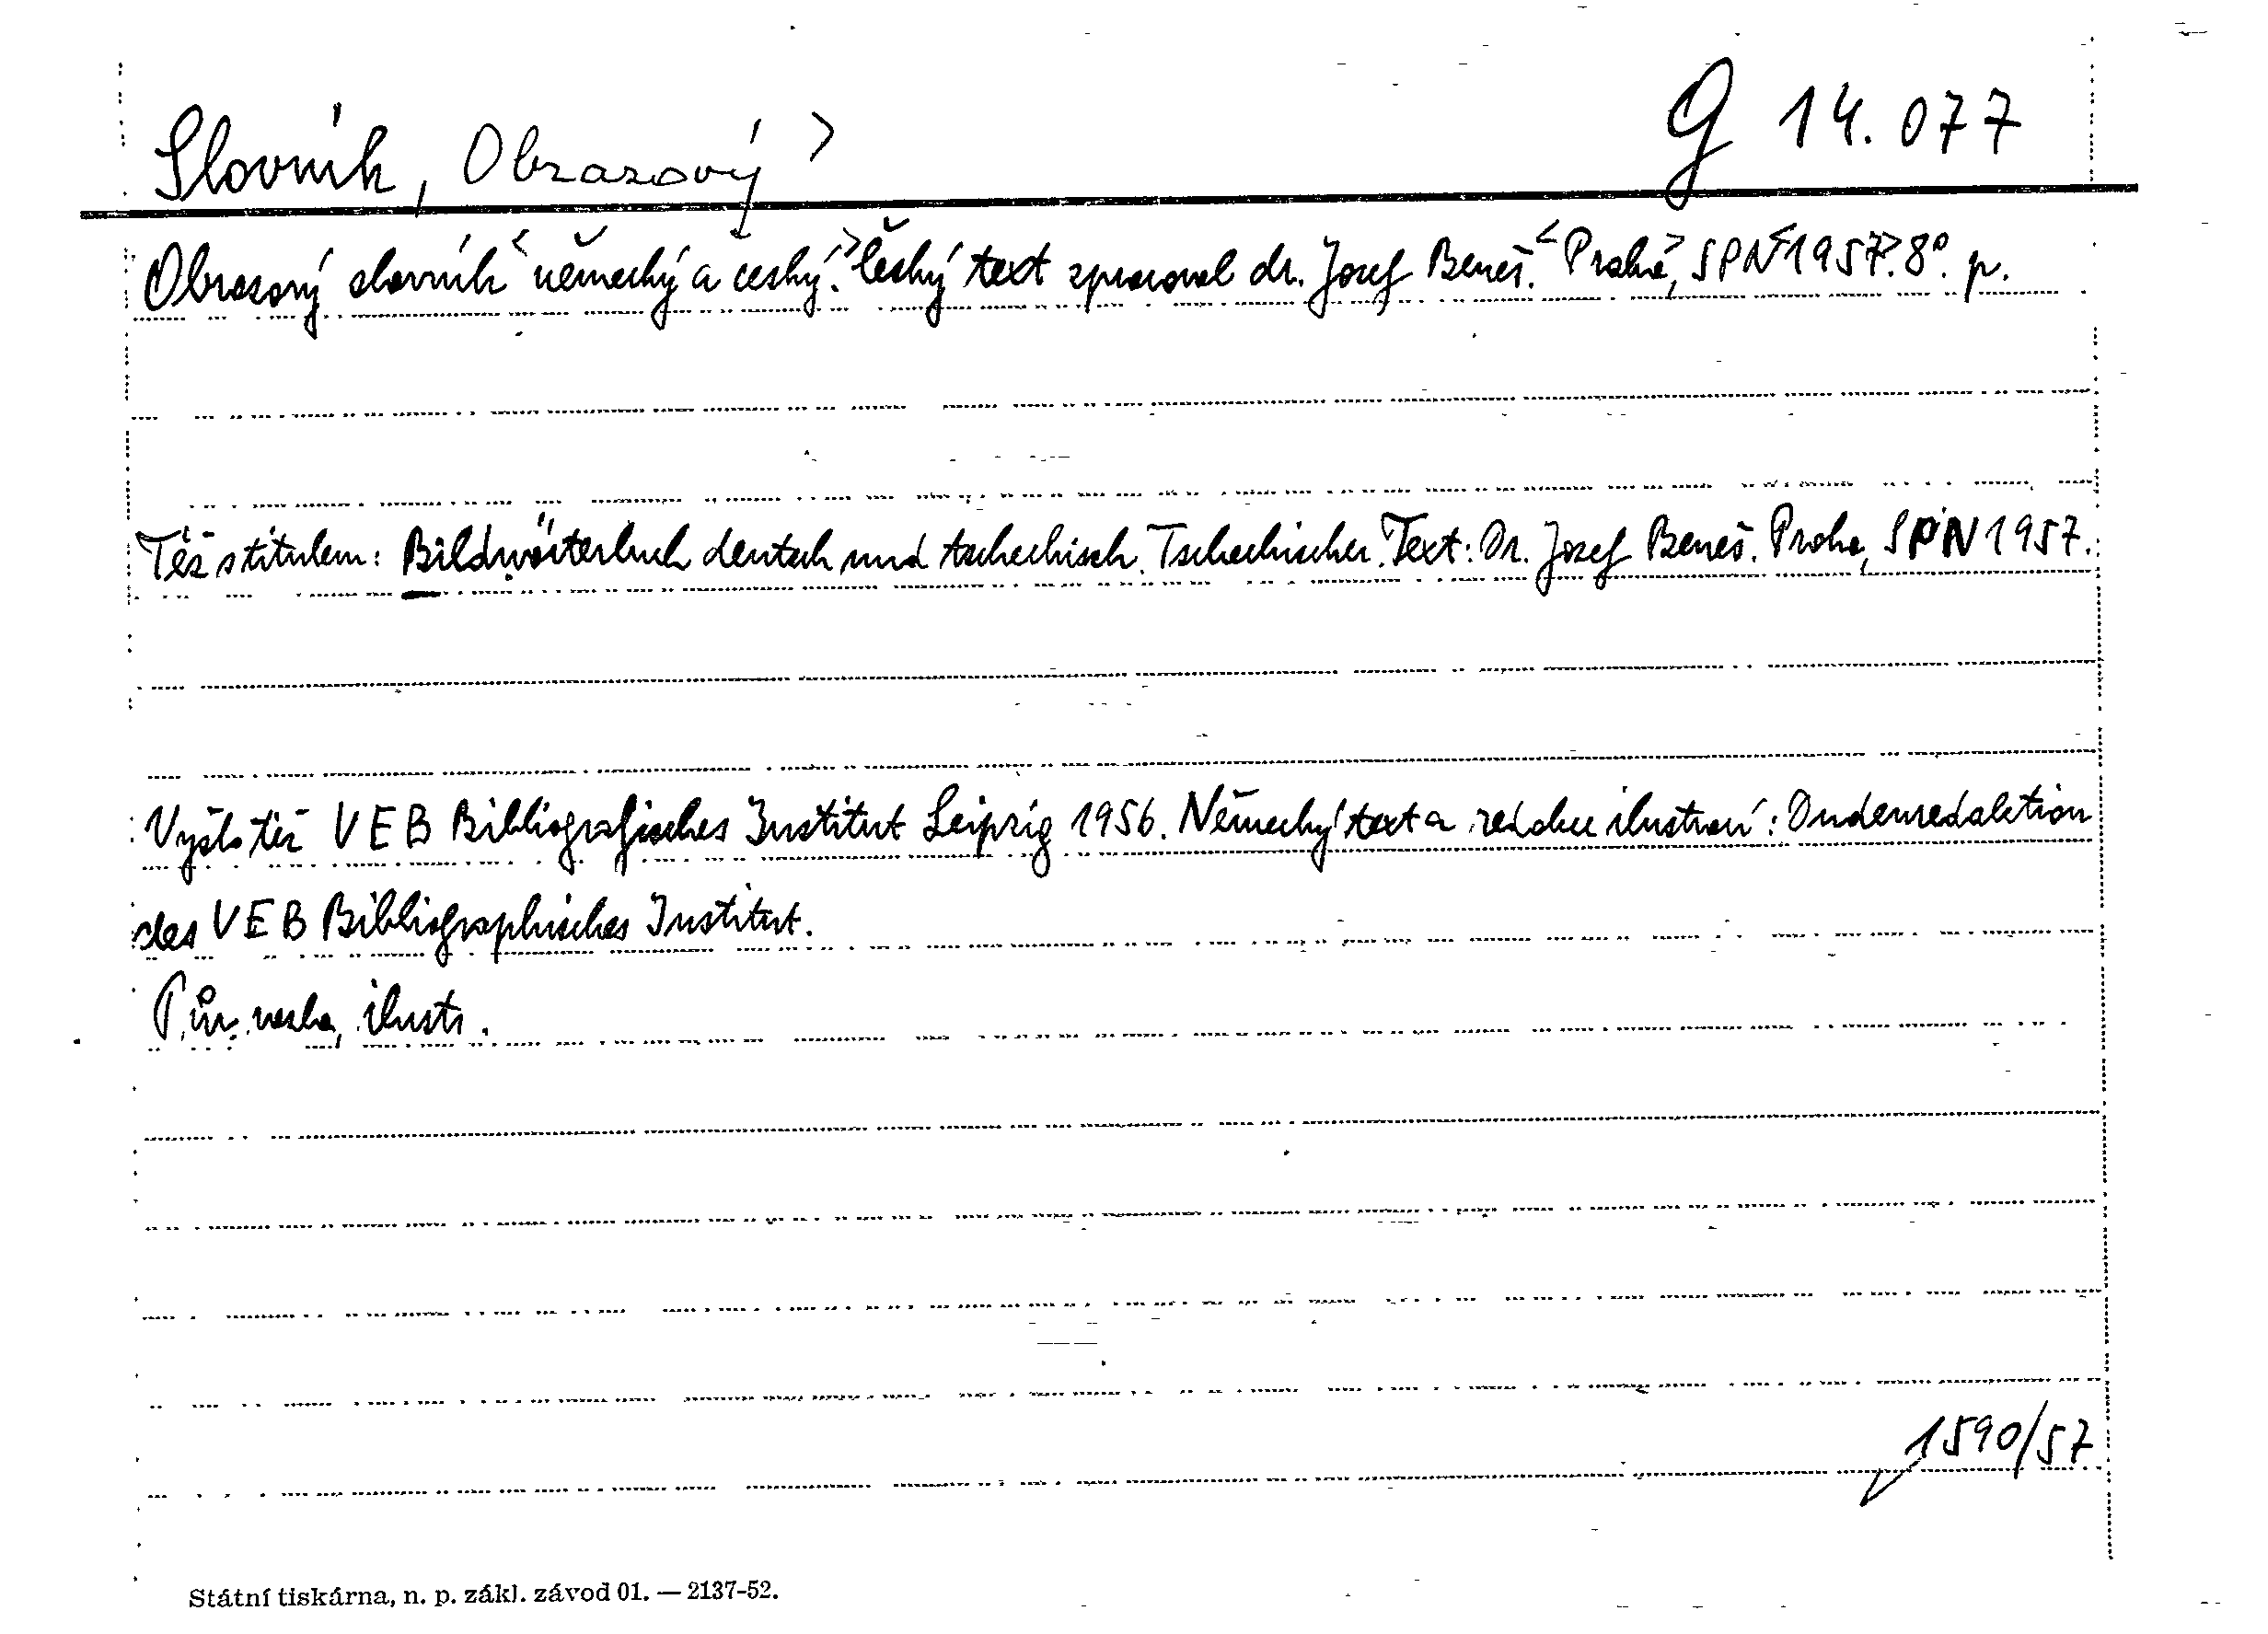 Slovník, Obrazový >
G 14.077
Obrazový slovník < německý a český. > Český text zpracoval dr. Josef Beneš. < Praha >, SPN < 1957 >. 8°. p.
Též s titulem: Bildwörterbuch deutsch und tschechisch. Tschechischer Text: Dr. Josef Beneš. Praha, SPN 1957.
Vyšlo též VEB Bibliografisches Institut Leipzig 1956. Německý text a redakce ilustrací: Dudenredaktion
des VEB Bibliographisches Institut.
Pův. vazba, ilustr.
1590/57
Státní tiskárna, n. p. zákl. závod 01. — 2137-52.